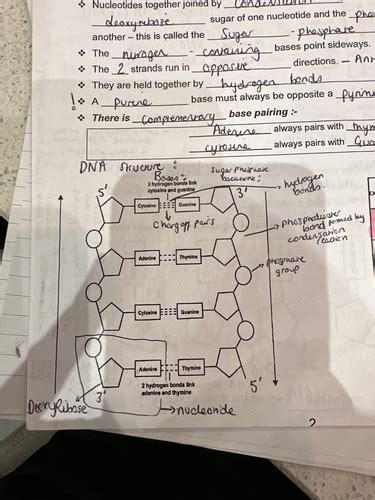 ❖ Nucleotides together joined by condensation
deoxyribose sugar of one nucleotide and the
another – this is called the Sugar - phosphate
❖ The nitrogen - containing bases point sideways.
❖ The 2 strands run in opposite directions. –
❖ They are held together by hydrogen bonds
! ❖ A purine base must always be opposite a
❖ There is complementary base pairing :-
Adenine always pairs with
cytosine always pairs with
DNA Structure :
Bases:
Sugar phosphate
backbone :
3 hydrogen bonds link
cytosine and guanine
5'
3'
hydrogen
bonds.
Cytosine Guanine
pairs
phosphodiester
bond formed by
condensation
Adenine Thymine
phosphate
group
Cytosine Guanine
Adenine Thymine
2 hydrogen bonds link
adenine and thymine
3'
5'
nucleotide
2